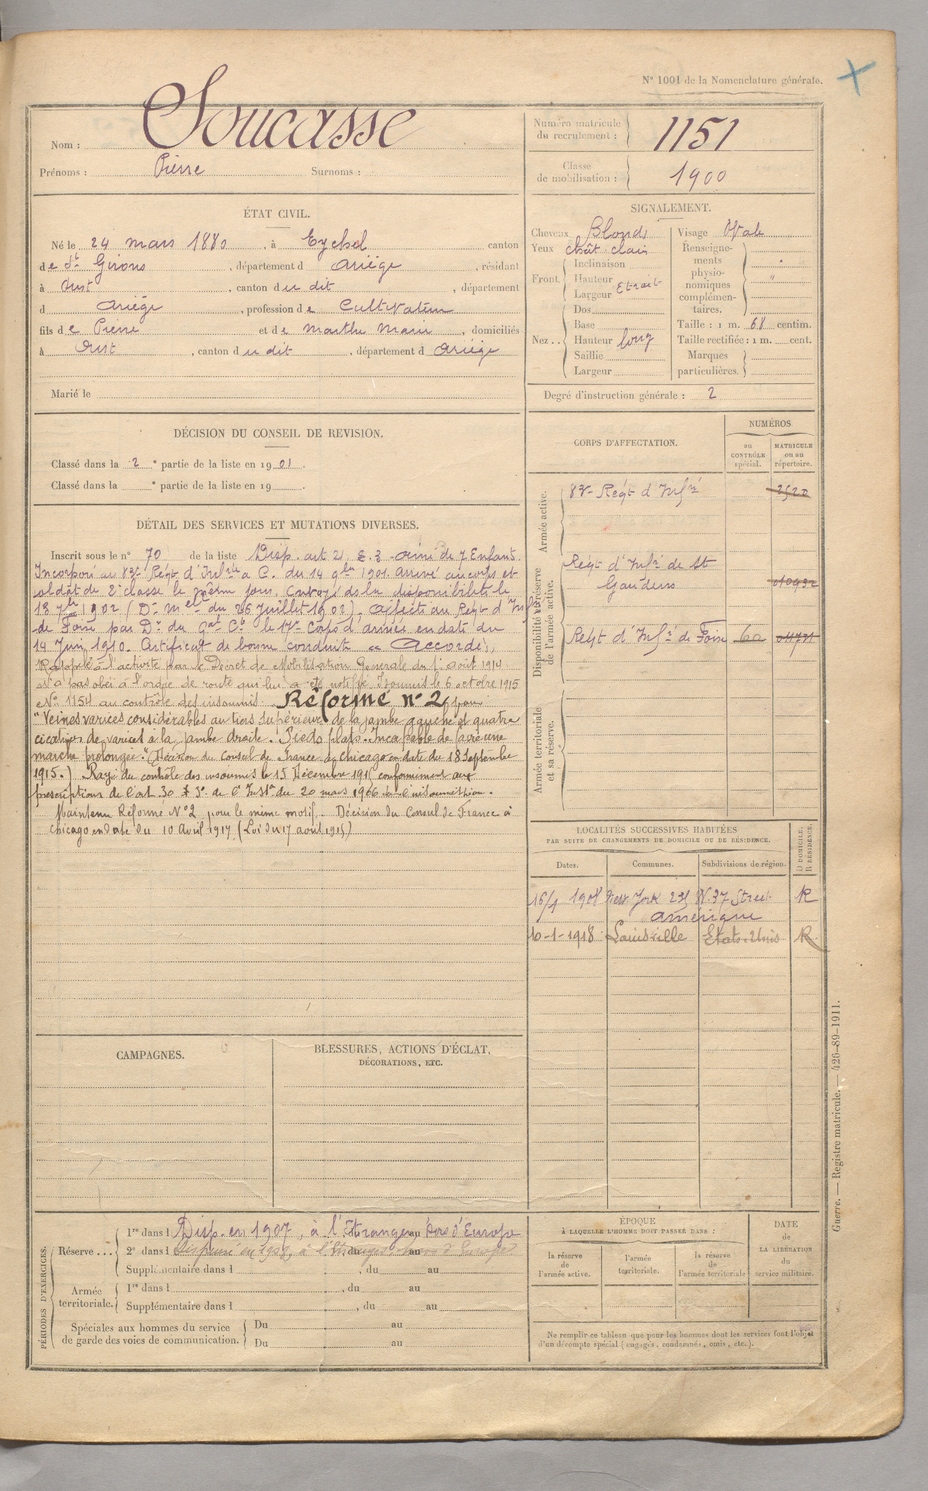 N° 1001 de la Nomenclature générale.
Nom : Soucasse
Prénoms : Pierre Surnoms :
Numéro matricule du recrutement : 1151
Classe de mobilisation : 1900
ÉTAT CIVIL.
Né le 24 mars 1880, à Eycheil canton
de St Girons, département d Ariège, résidant
à Aust, canton du dit, département
d Ariège, profession de Cultivateur
fils de Pierre et de Marthe Marie, domiciliés
à Aust, canton du dit, département d Ariège
Marié le
SIGNALEMENT.
Cheveux Blonds
Yeux chât clair
Front Inclinaison
Hauteur
Largeur Etroit
Nez Dos
Base
Hauteur long
Saillie
Largeur
Visage Ovale
Renseignements physionomiques complémentaires.
Taille : 1 m. 68 centim.
Taille rectifiée : 1 m. cent.
Marques particulières.
Degré d'instruction générale : 2
DÉCISION DU CONSEIL DE REVISION.
Classé dans la 2e partie de la liste en 1901.
Classé dans la e partie de la liste en 19
DÉTAIL DES SERVICES ET MUTATIONS DIVERSES.
Inscrit sous le n° 70 de la liste Disp. art 21 § 3 aîné de 7 Enfants.
Incorporé au 83e Régt d'Infrie à C. du 14 9bre 1901. arrivé au corps et
soldat de 2e classe le même jour. Envoyé dans la disponibilité le
18 7bre 1902 (Dn melle du 26 Juillet 1902). Affecté au Régt d'Infrie
de Foix par Dn du Gal Ct le 17e Corps d'armée en date du
14 Juin 1910. Certificat de bonne conduite "Accordé".
Rappelé à l'activité par le Décret de Mobilisation Générale du 1er août 1914
n'a pas obéi à l'ordre de route qui lui a été notifié. Insoumis le 6 octobre 1915
N° 1154 au contrôle des insoumis. Réformé n° 2 pour
"Veines varices considérables au tiers supérieur de la jambe gauche et quatre
cicatrices de varices à la jambe droite. Pieds plats. Incapable de faire une
marche prolongée." (Décision du Consul de France de Chicago en date du 18 Septembre
1915.) Rayé du contrôle des insoumis le 15 Décembre 1915 conformément aux
prescriptions de l'art. 30 § 3° de l' Instn du 20 mars 1906
Maintenu Réformé N° 2 pour le même motif. Décision du Consul de France à
Chicago en date du 10 Avril 1917 (Loi du 17 août 1915)
CORPS D'AFFECTATION.
NUMÉROS
au CONTRÔLE spécial.
MATRICULE ou au répertoire.
Armée active.
83e Régt d'Infrie 2520
Disponibilité et réserve de l'armée active.
Régt d'Infie de St Gaudens
Régt d'Infie de Foix
Armée territoriale et sa réserve.
LOCALITÉS SUCCESSIVES HABITÉES
PAR SUITE DE CHANGEMENTS DE DOMICILE OU DE RÉSIDENCE.
Dates. Communes. Subdivisions de région. D DOMICILE. R RÉSIDENCE.
16/4 1908 New York W. 37 Street Amérique R
10-1-1918 Louisville Etats-Unis R
CAMPAGNES.
BLESSURES, ACTIONS D'ÉCLAT,
DÉCORATIONS, ETC.
PÉRIODES D'EXERCICES.
Réserve... 1re dans l Disp. en 1907, à l'Etranger hors d'Europe
2e dans l Dispensé en 1908, à l'Etranger hors d'Europe
Supplémentaire dans l , du au
Armée territoriale. 1re dans l , du au
Supplémentaire dans l , du au
Spéciales aux hommes du service de garde des voies de communication. Du au
Du au
ÉPOQUE
À LAQUELLE L'HOMME DOIT PASSER DANS :
la réserve de l'armée active.
l'armée territoriale.
la réserve de l'armée territoriale
DATE
de
LA LIBÉRATION
du
service militaire.
Ne remplir ce tableau que pour les hommes dont les services font l'objet
d'un décompte spécial (engagés, condamnés, omis, etc.).
Guerre. — Registre matricule. — 426-89-1911.